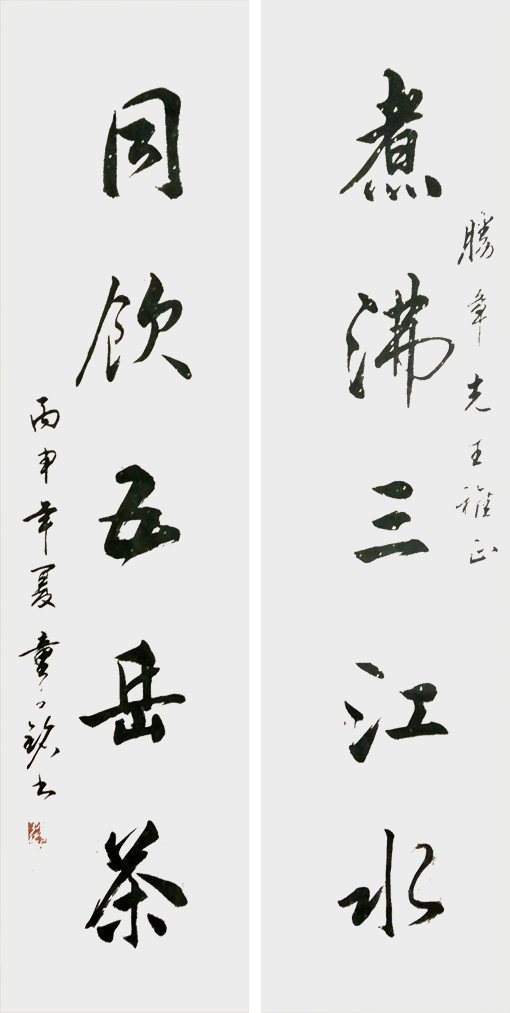 勝章先生雅正
煮沸三江水
同飲五岳茶
丙申年夏童銘书